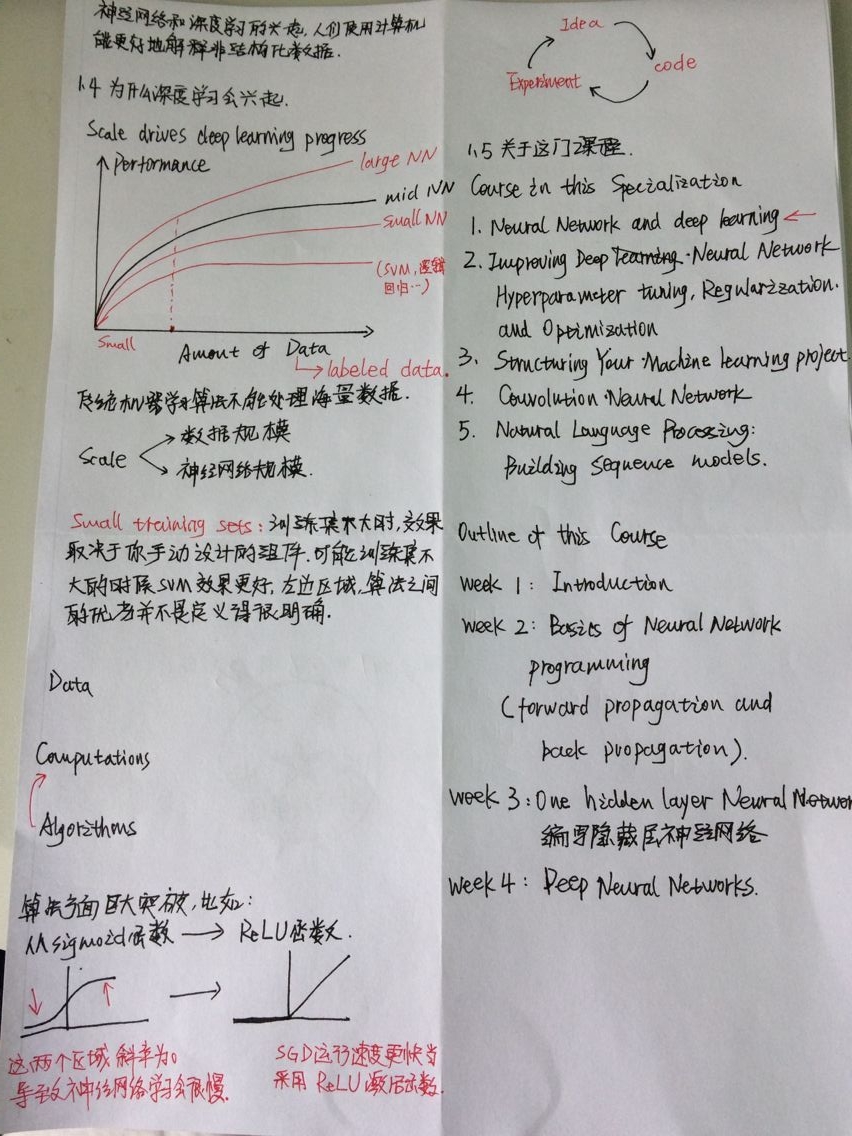 神经网络和深度学习的兴起,人们使用计算机
能更好地解释非结构化数据.
1.4 为什么深度学习会兴起.
Scale drives deep learning progress
Performance
large NN
mid NN
small NN
(SVM,逻辑
回归…)
Small
Amount of Data
labeled data.
传统机器学习算法不能处理海量数据.
Scale
数据规模
神经网络规模.
Small training sets: 训练集不大时,效果
取决于你手动设计的组件.可能训练集不
大的时候SVM效果更好,左边区域,算法之间
的优劣并不是定义得很明确.
Data
Computations
Algorithms
算法方面巨大突破,比如:
从sigmoid函数 → ReLU函数.
这两个区域斜率为0
导致神经网络学习会很慢.
SGD运行速度更快当
采用 ReLU激活函数.
Idea
code
Experiment
1.5 关于这门课程.
Course in this Specialization
1. Neural Network and deep learning ←
2. Improving Deep learning·Neural Network
Hyperparameter tuning, Regularization.
and Optimization
3. Structuring Your Machine learning project
4. Convolution·Neural Network
5. Natural Language Processing:
Building sequence models.
Outline of this Course
week 1: Introduction
week 2: Basics of Neural Network
programming
(forward propagation and
back propagation).
week 3: One hidden layer Neural Networ
编写隐藏层神经网络
week 4: Deep Neural Networks.